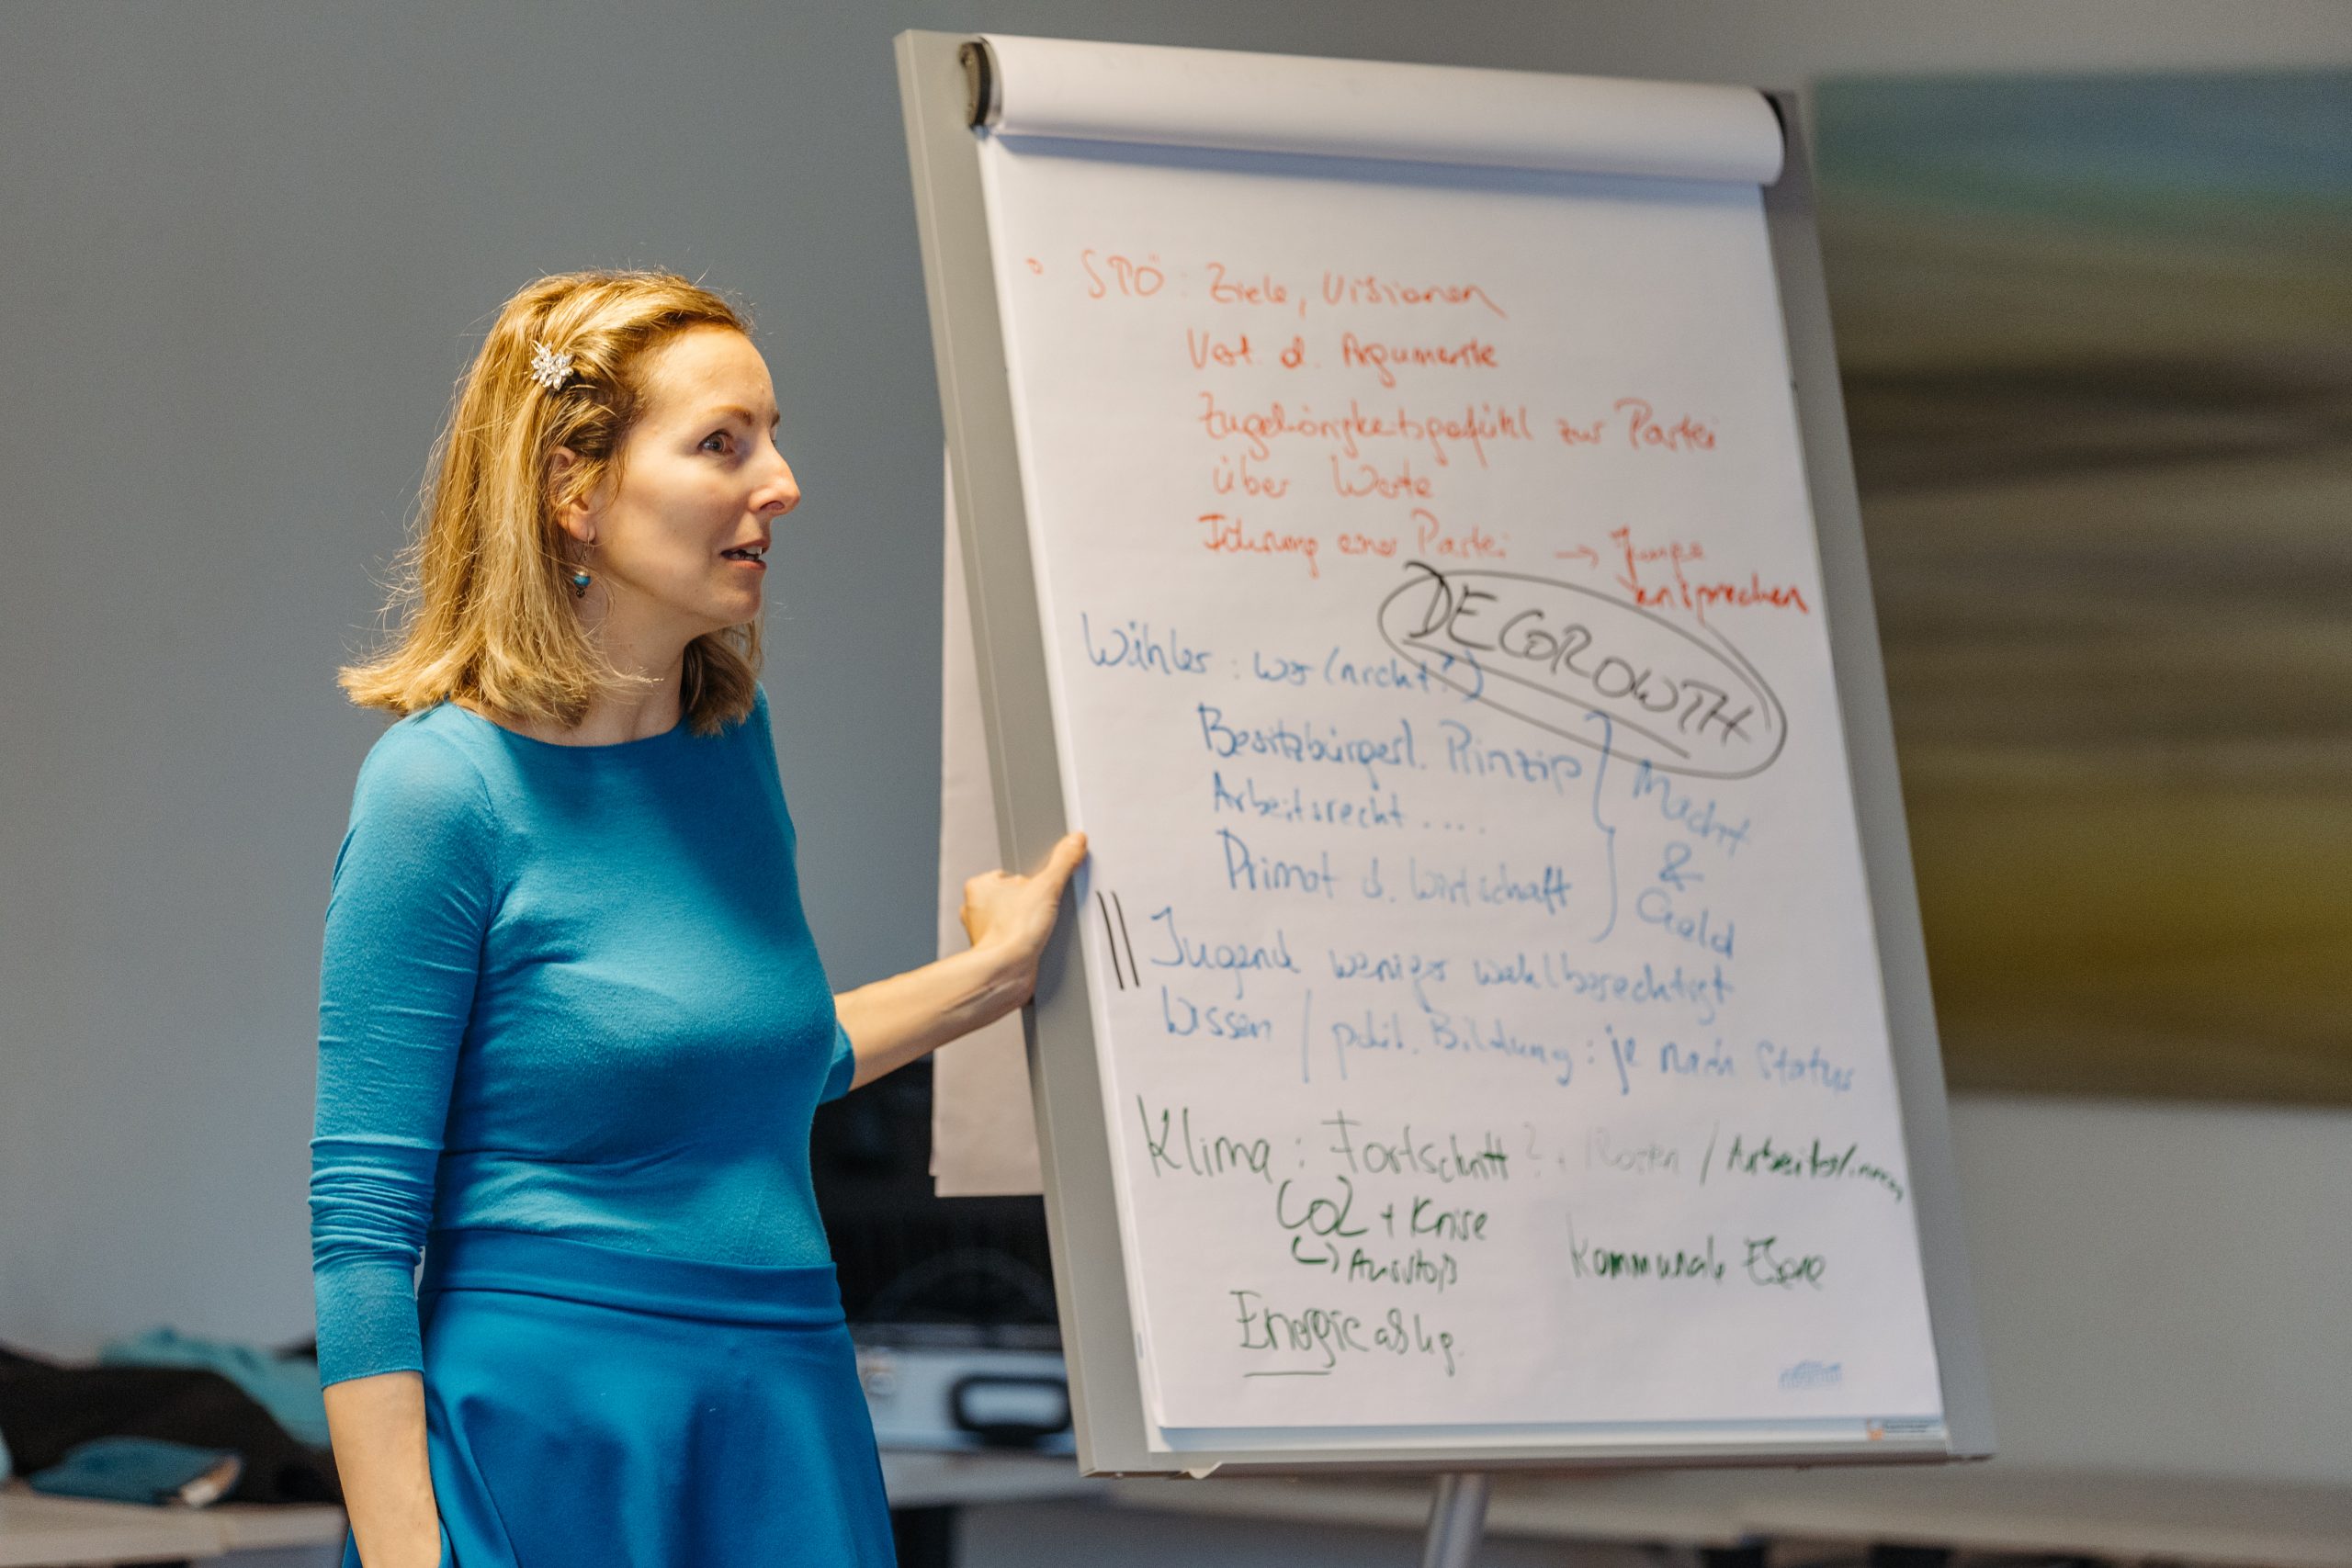 SPÖ: Ziele, Visionen
Vert. d. Argumente
Zugehörigkeitsgefühl zur Partei
über Werte
einer Partei → Junge
entsprechen
DEGROWTH
Wähler: wer (nicht?)
Besitzbürgerl. Prinzip
Arbeitsrecht ....
Primat d. Wirtschaft
Macht
&
Geld
Jugend weniger wahlberechtigt
Wissen / polit. Bildung: je nach Status
Klima: Fortschritt?. Kosten / Arbeiter/innen
CO2 + Krise
↳ Ausstoß
Kommunale Ebene
Energie